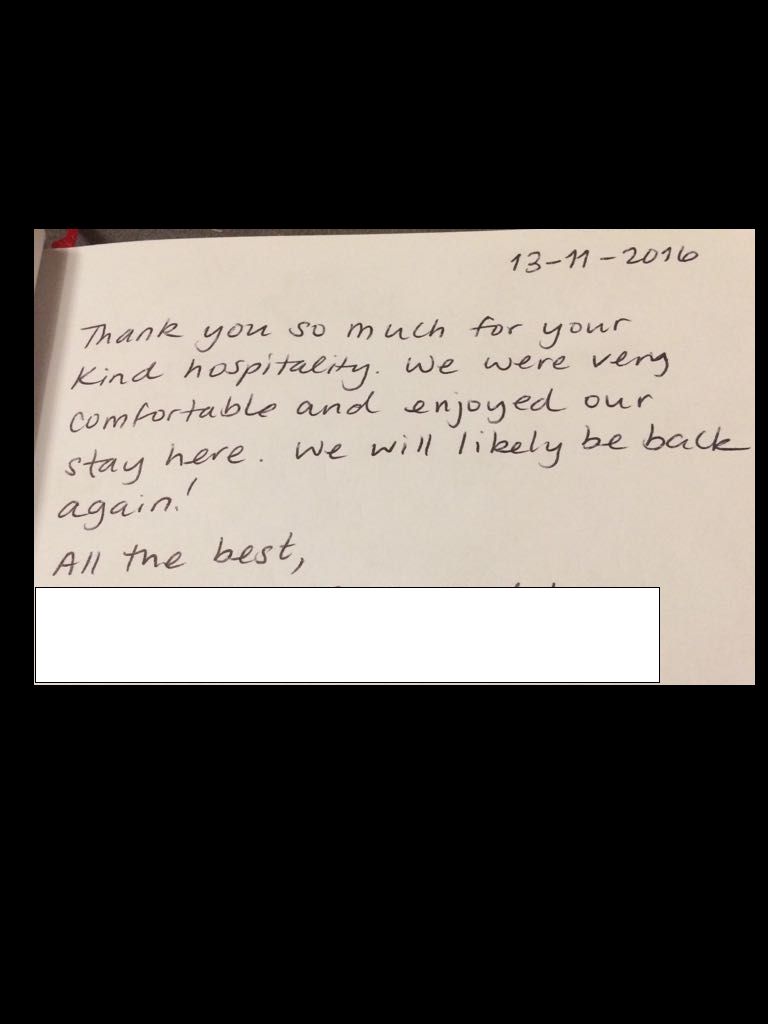 13-11-2016
Thank you so much for your
kind hospitality. We were very
comfortable and enjoyed our
stay here. We will likely be back
again!
All the best,